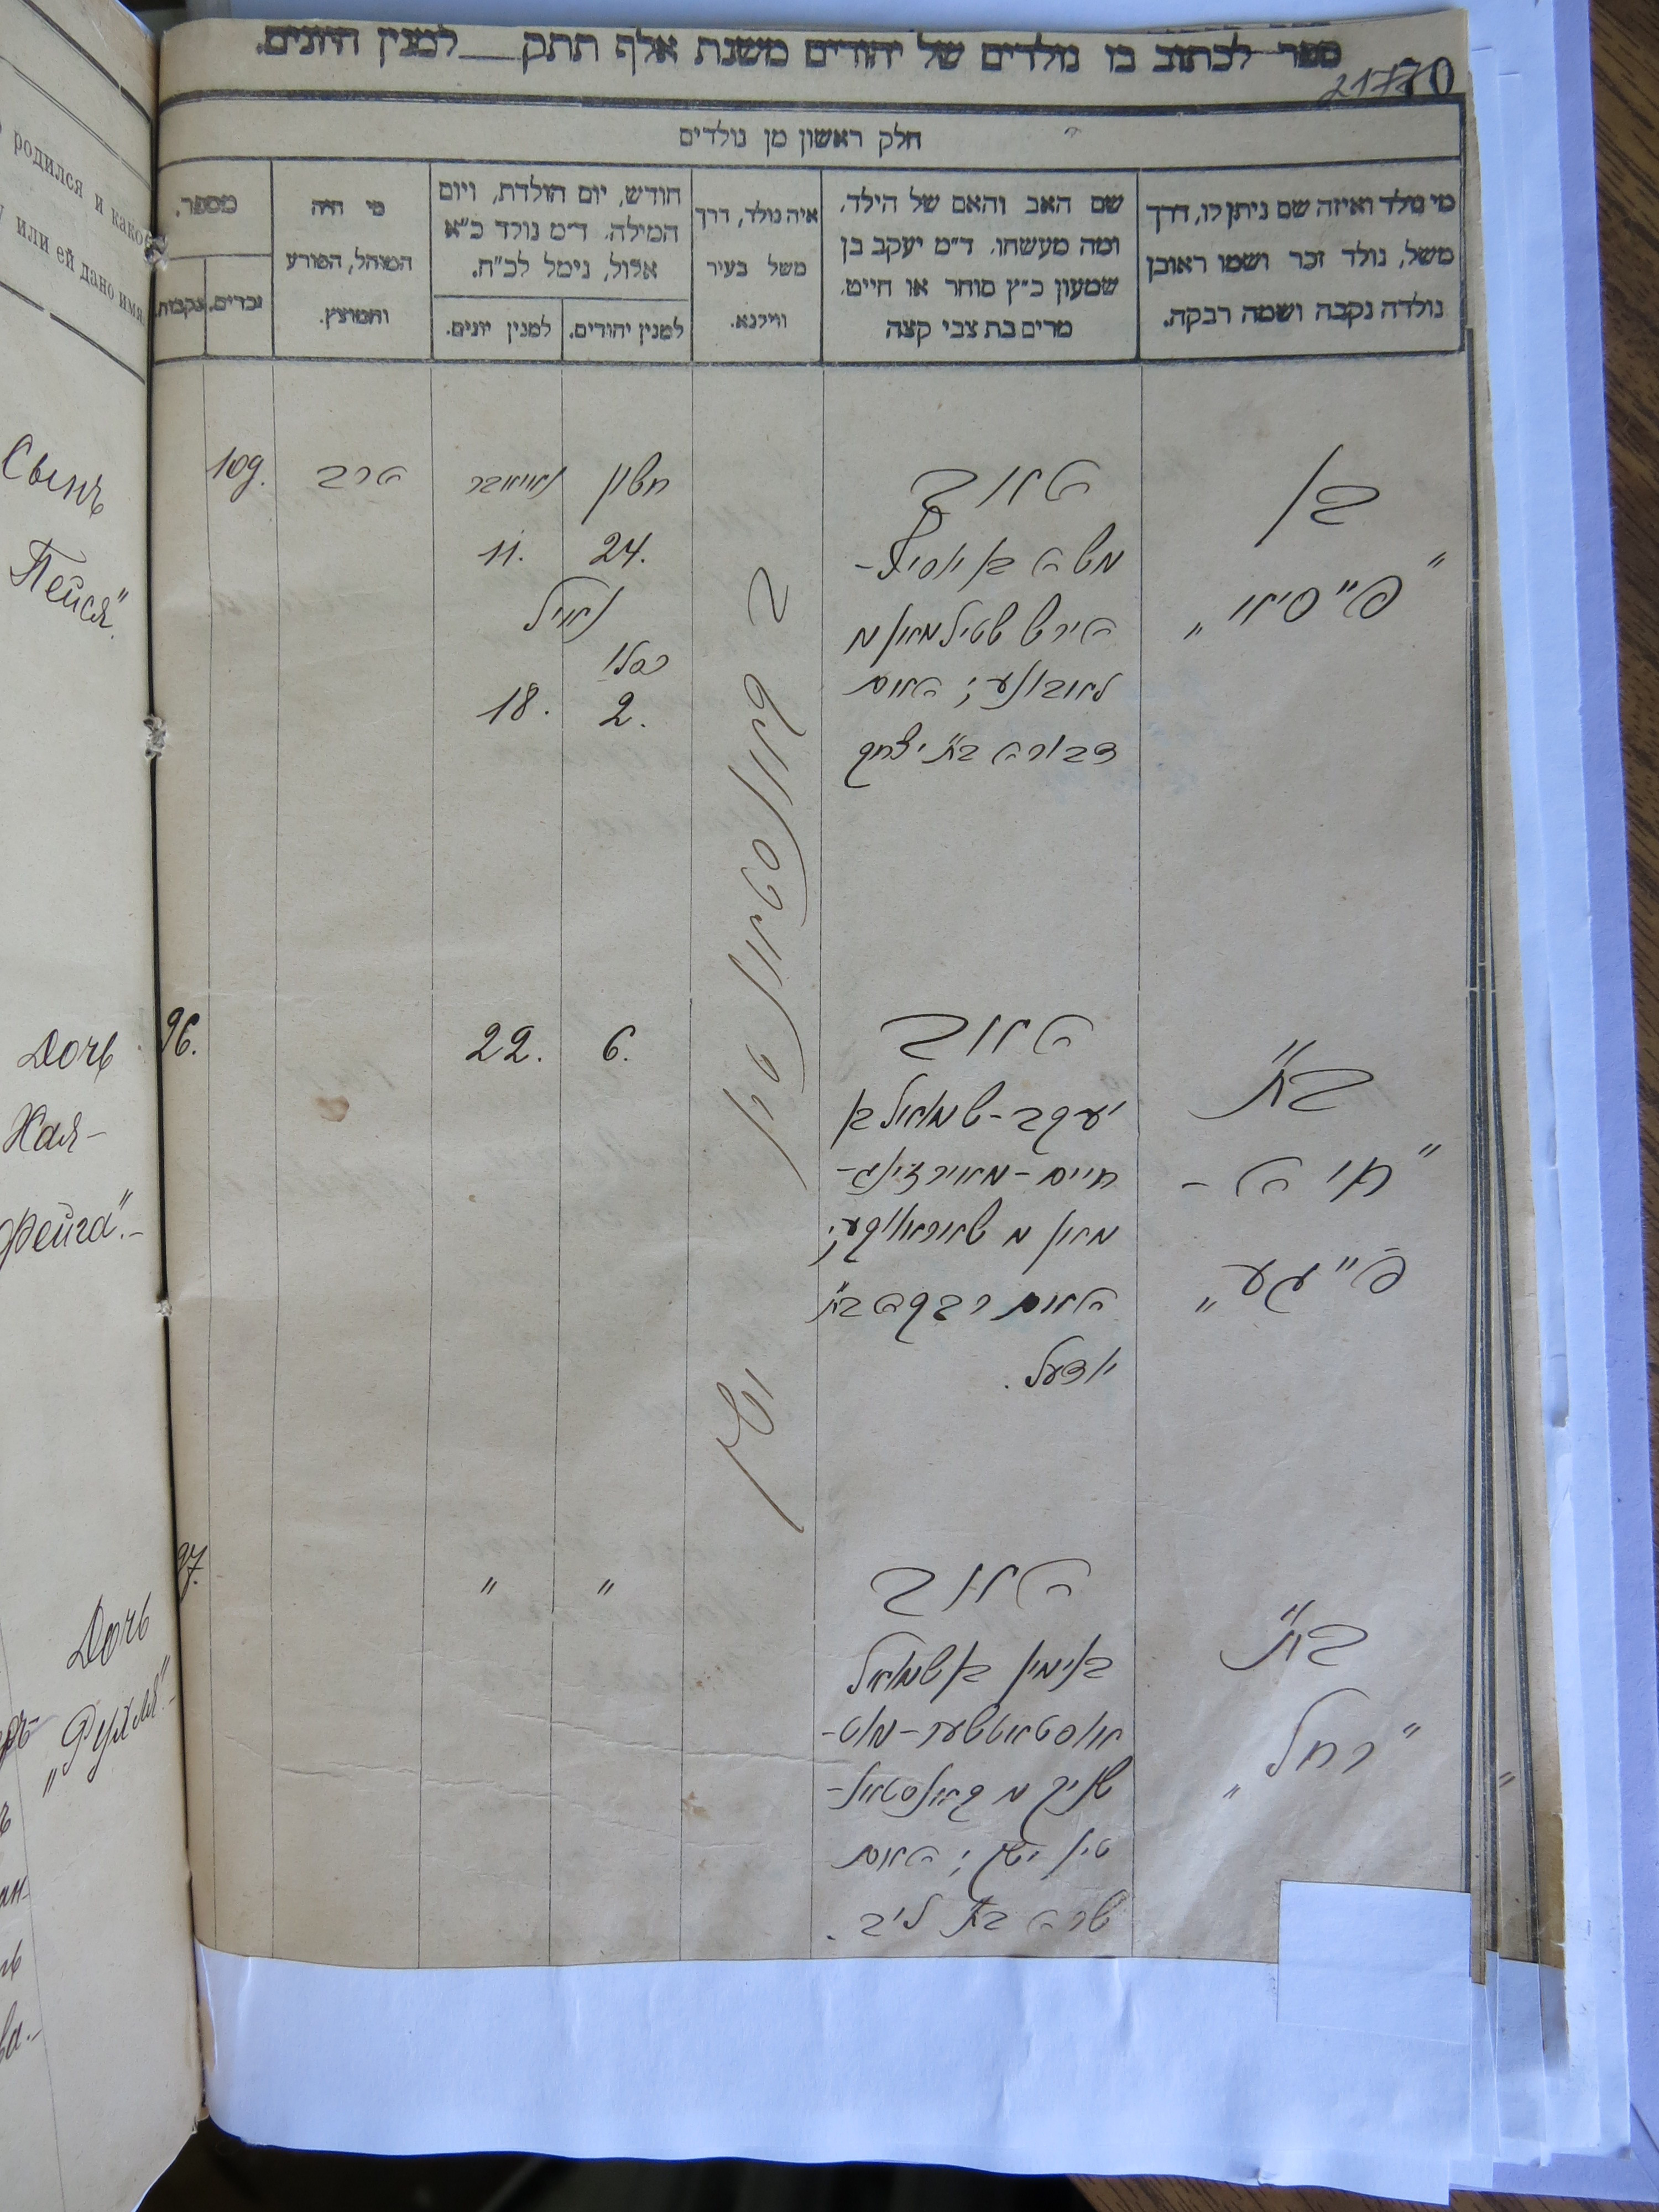 ספר לכתוב בו נולדים של יהודים משנת אלף תתק __ למנין היונים.
חלק ראשון מן נולדים
מי נולד ואיזה שם ניתן לו, דרך
משל, נולד זכר ושמו ראובן
נולדה נקבה ושמה רבקה.
שם האב והאם של הילד,
ומה מעשהו. ד״מ יעקב בן
שמעון כ״ץ סוחר או חייט.
מרים בת צבי קצה
איה נולד, דרך
משל בעיר
ווילנא.
חודש, יום הולדת, ויום
המילה. ד״מ נולד כ״א
אלול, נימל לכ״ח.
למנין יהודים.
למנין יונים.
מי היה
המוהל, הפורע
והמוצץ.
מספר,
זכרים.
נקבות.
родился и како
или ей дано имя
Сынъ
"Пейся".
109.
הרב
חשון
נאיאבר
24.
11.
נימול
כסלו
2.
18.
האב
משה בן יוסיף-
הירש שטילמאן מ
לאובאנע; האם
דבורה בת יצחק
בן
"פייסיא"
ב קאנסטאנטין
ישן
Дочь
Хая-
Фейга".-
96.
22.
6.
האב
יעקב-שמואל בן
חיים-מאיר זינג-
האם רבקה בת
יודעל.
בת
"חיה-
פייגע"
Дочь
"Рухля".-
97.
"
"
האב
בנימין בן שמואל
שניק מ קאנסטאנ-
טין ישן; האם
שרה בת ליב.
בת
"רחל"